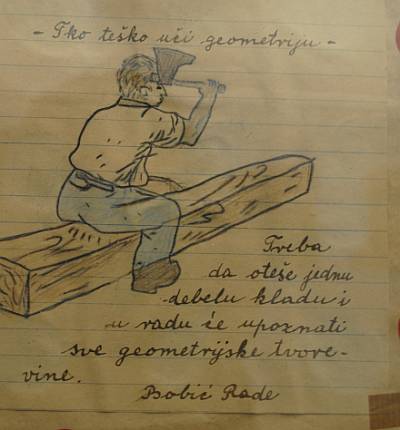 - Tko teško uči geometriju -
Treba
da oteše jednu
debelu kladu i
u radu će upoznati
sve geometrijske tvore-
vine.
Bobić Rade